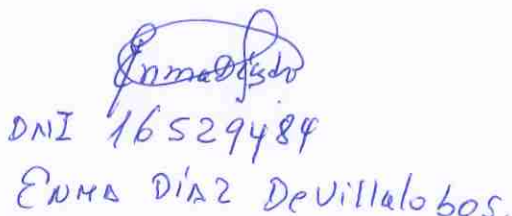 DNI 16529484
ENMA DÍAZ DeVillalobos.